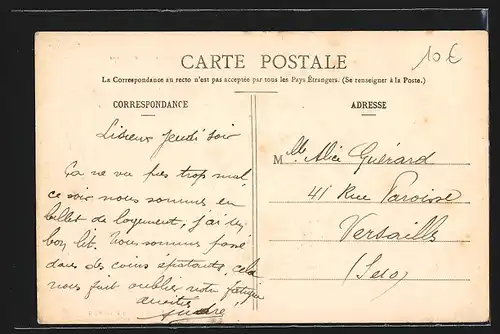 10 €
CARTE POSTALE
La Correspondance au recto n'est pas acceptée par tous les Pays Étrangers. (Se renseigner à la Poste.)
CORRESPONDANCE
Lisieux Jeudi Soir
Ça ne va pas trop mal,
ce soir nous sommes en
billet de logement, j'ai un
bon lit. Nous sommes passé
dans des coins épatants, cela
nous fait oublier notre fatigue
André
ADRESSE
Mlle Alice Guérard
41 Rue Paroisse
Versailles
(S et O)